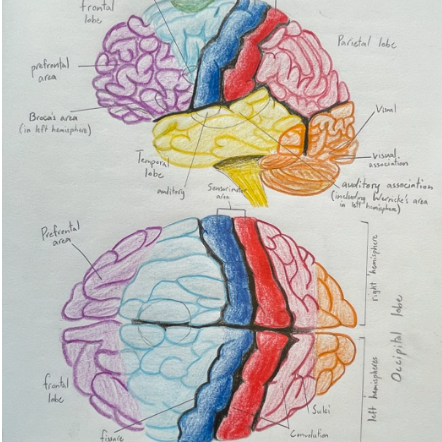 frontal
lobe
Parietal lobe
prefrontal
area
Broca's area
(in left hemisphere)
Visual
visual
association
Temporal
lobe
auditory
auditory association
(including Wernicke's area
in left hemisphere)
Sensorimotor
area
Prefrontal
area
right hemisphere
Occipital lobe
left hemispheres
frontal
lobe
fissure
Sulci
Convolution